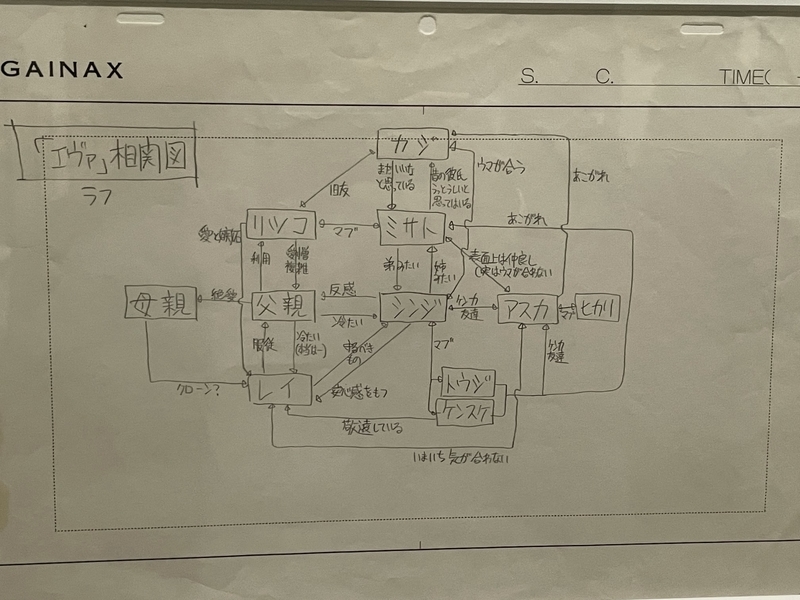 GAINAX
S. C. TIME(
「エヴァ」相関図
ラフ
カジ
旧友
まだいいなと思っている
昔の彼氏
うっとうしいと
思ってはいる
ウマが合う
あこがれ
リツコ
マブ
ミサト
あこがれ
愛と嫉妬
利用
愛憎
複雑
弟みたい
姉みたい
表面上は仲良し
(実はウマが合わない
母親
絶愛
父親
反感
冷たい
シンジ
ケンカ
友達
アスカ
マブ
ヒカリ
服従
冷たい
守るべき
もの
マブ
ケンカ
友達
クローン?
レイ
安心感をもつ
トウジ
ケンスケ
敬遠している
いまいち気が合わない